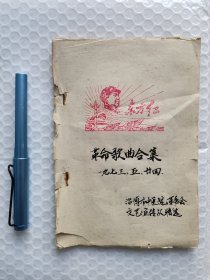 东方红
革命歌曲合集
一九七三、五、廿四.
淄博中医院革委会
文艺宣传队赠选